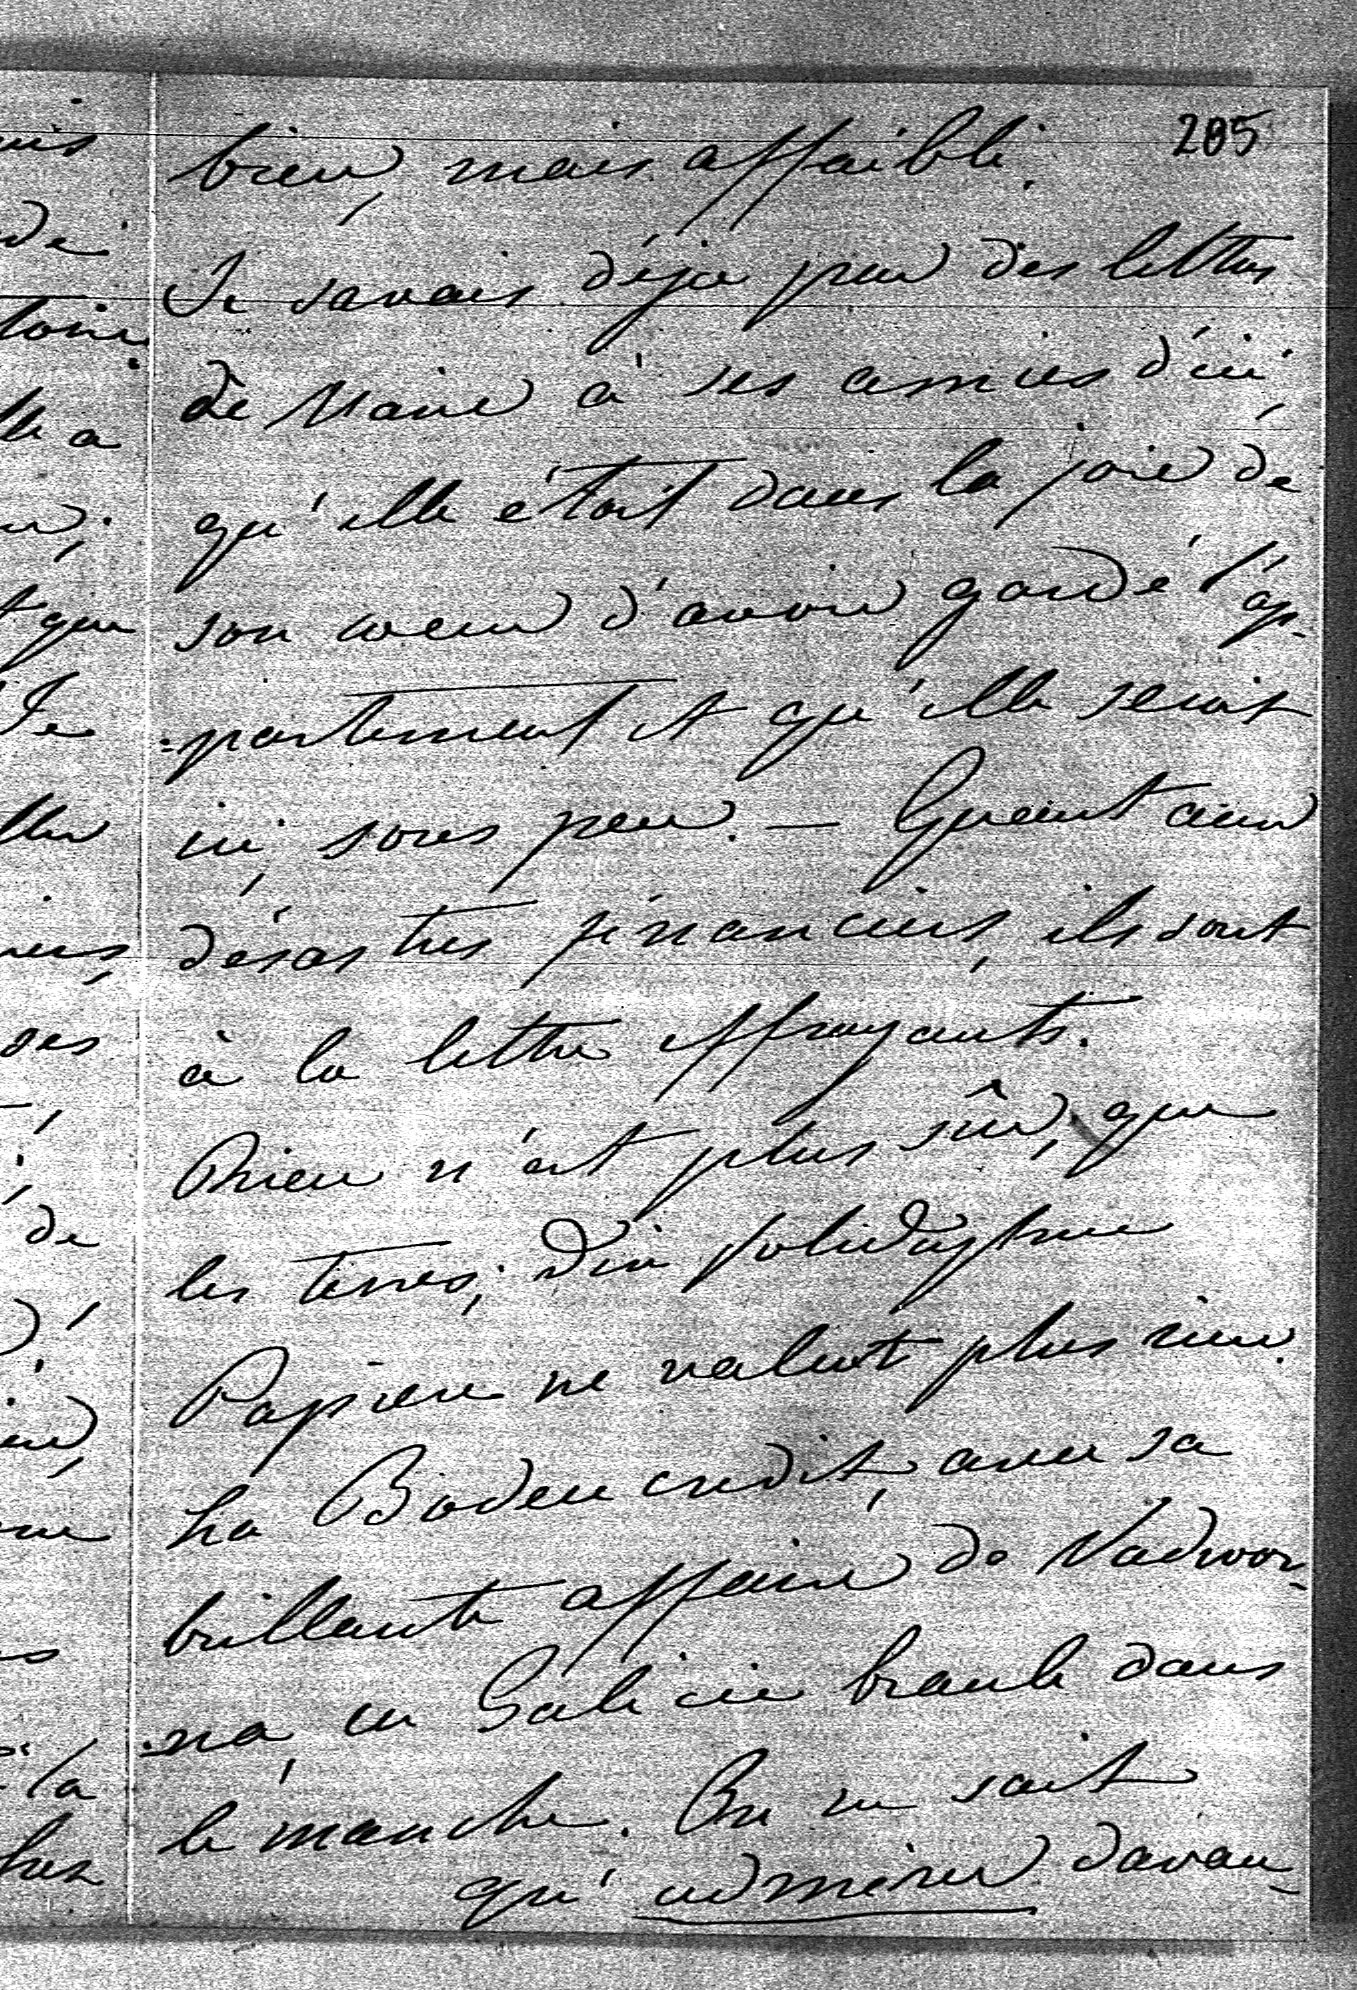 205
bien, mais affaibli.
Je savais déjà par des lettres
de Marie à ses amies d'ici,
qu'elle était dans la joie de
son coeur d'avoir gardé l'ap-
=partement et qu'elle serait
ici, sous peu. — Quant aux
désastres financiers, ils sont
à la lettre effrayants.
Rien n'est plus sûr, que
les terres; die solidesten
Papiere ne valent plus rien.
La Bodencredit, avec sa
brillante affaire de Nadwor-
-na, en Galicie branle dans
le manche. On ne sait
qu'admirer davan-